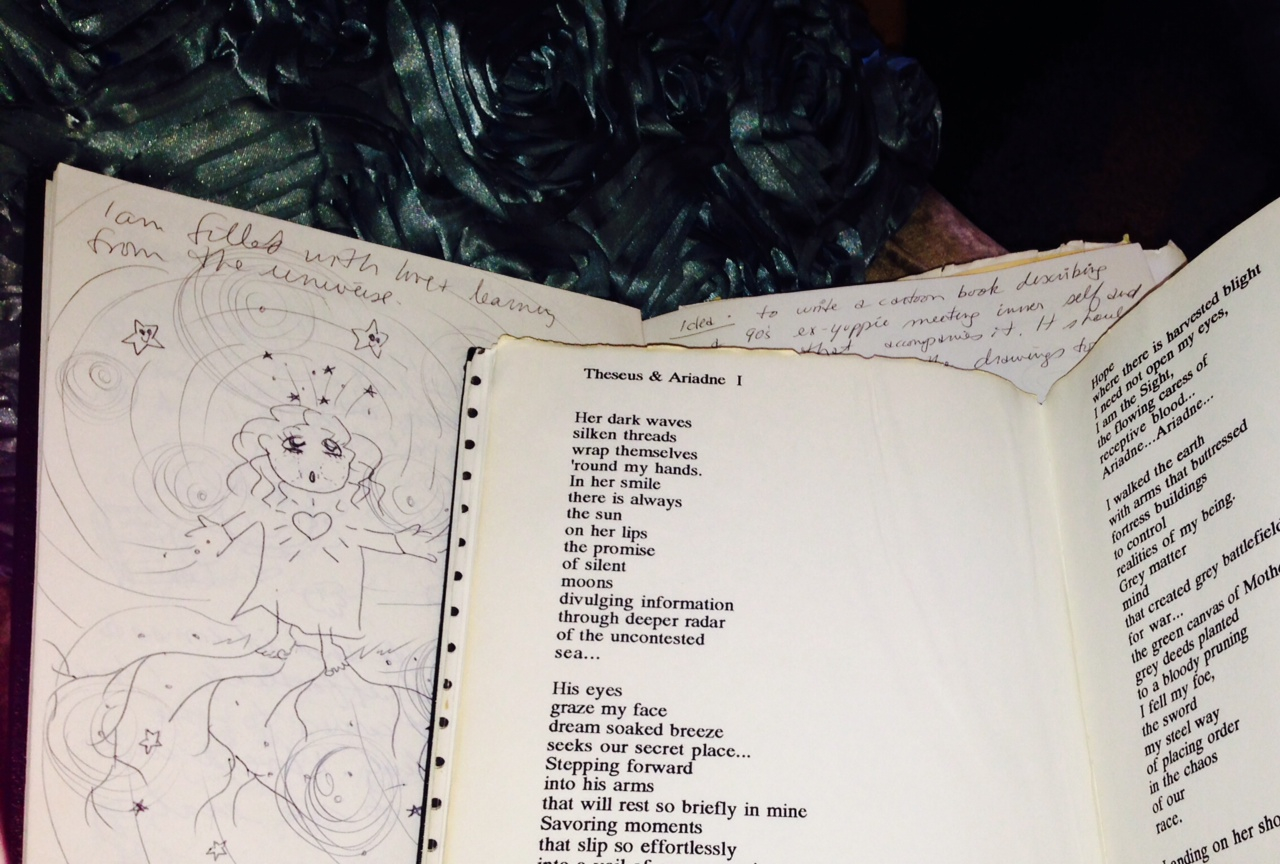 I am filled with
learning
from the universe.
Idea: to write a cartoon book describing
90's ex-yuppie meeting inner self and
that accompanies it. It
the drawings
Theseus & Ariadne I
Her dark waves
silken threads
wrap themselves
'round my hands.
In her smile
there is always
the sun
on her lips
the promise
of silent
moons
divulging information
through deeper radar
of the uncontested
sea...
His eyes
graze my face
dream soaked breeze
seeks our secret place...
Stepping forward
into his arms
that will rest so briefly in mine
Savoring moments
that slip so effortlessly
into a veil of
Hope
where there is harvested blight
I need not open my eyes,
I am the Sight,
the flowing caress of
receptive blood...
Ariadne...Ariadne...
I walked the earth
with arms that buttressed
fortress buildings
to control
realities of my being.
Grey matter
mind
that created grey battlefield
for war...
the green canvas of
grey deeds planted
to a bloody pruning
I fell my foe,
the sword
my steel way
of placing order
in the chaos
of our
race.
on her